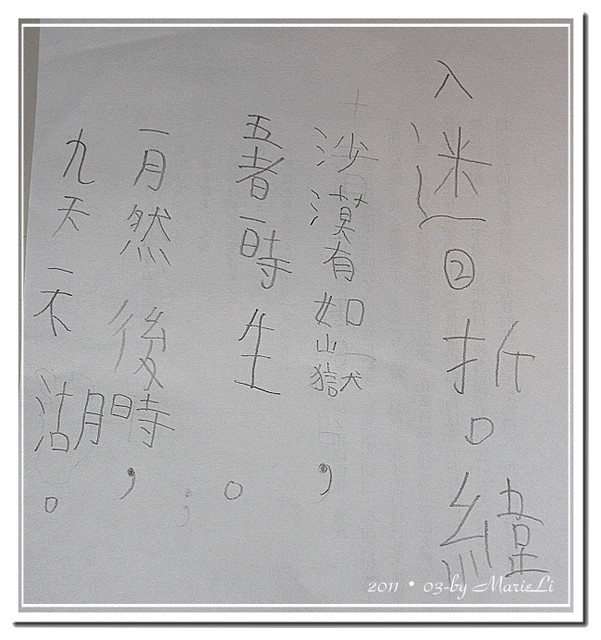 入迷回折口緯
沙漠有如嶽，
五者一時生。
一月然後時，
九天一不湖。
2011・03-by MarieLi